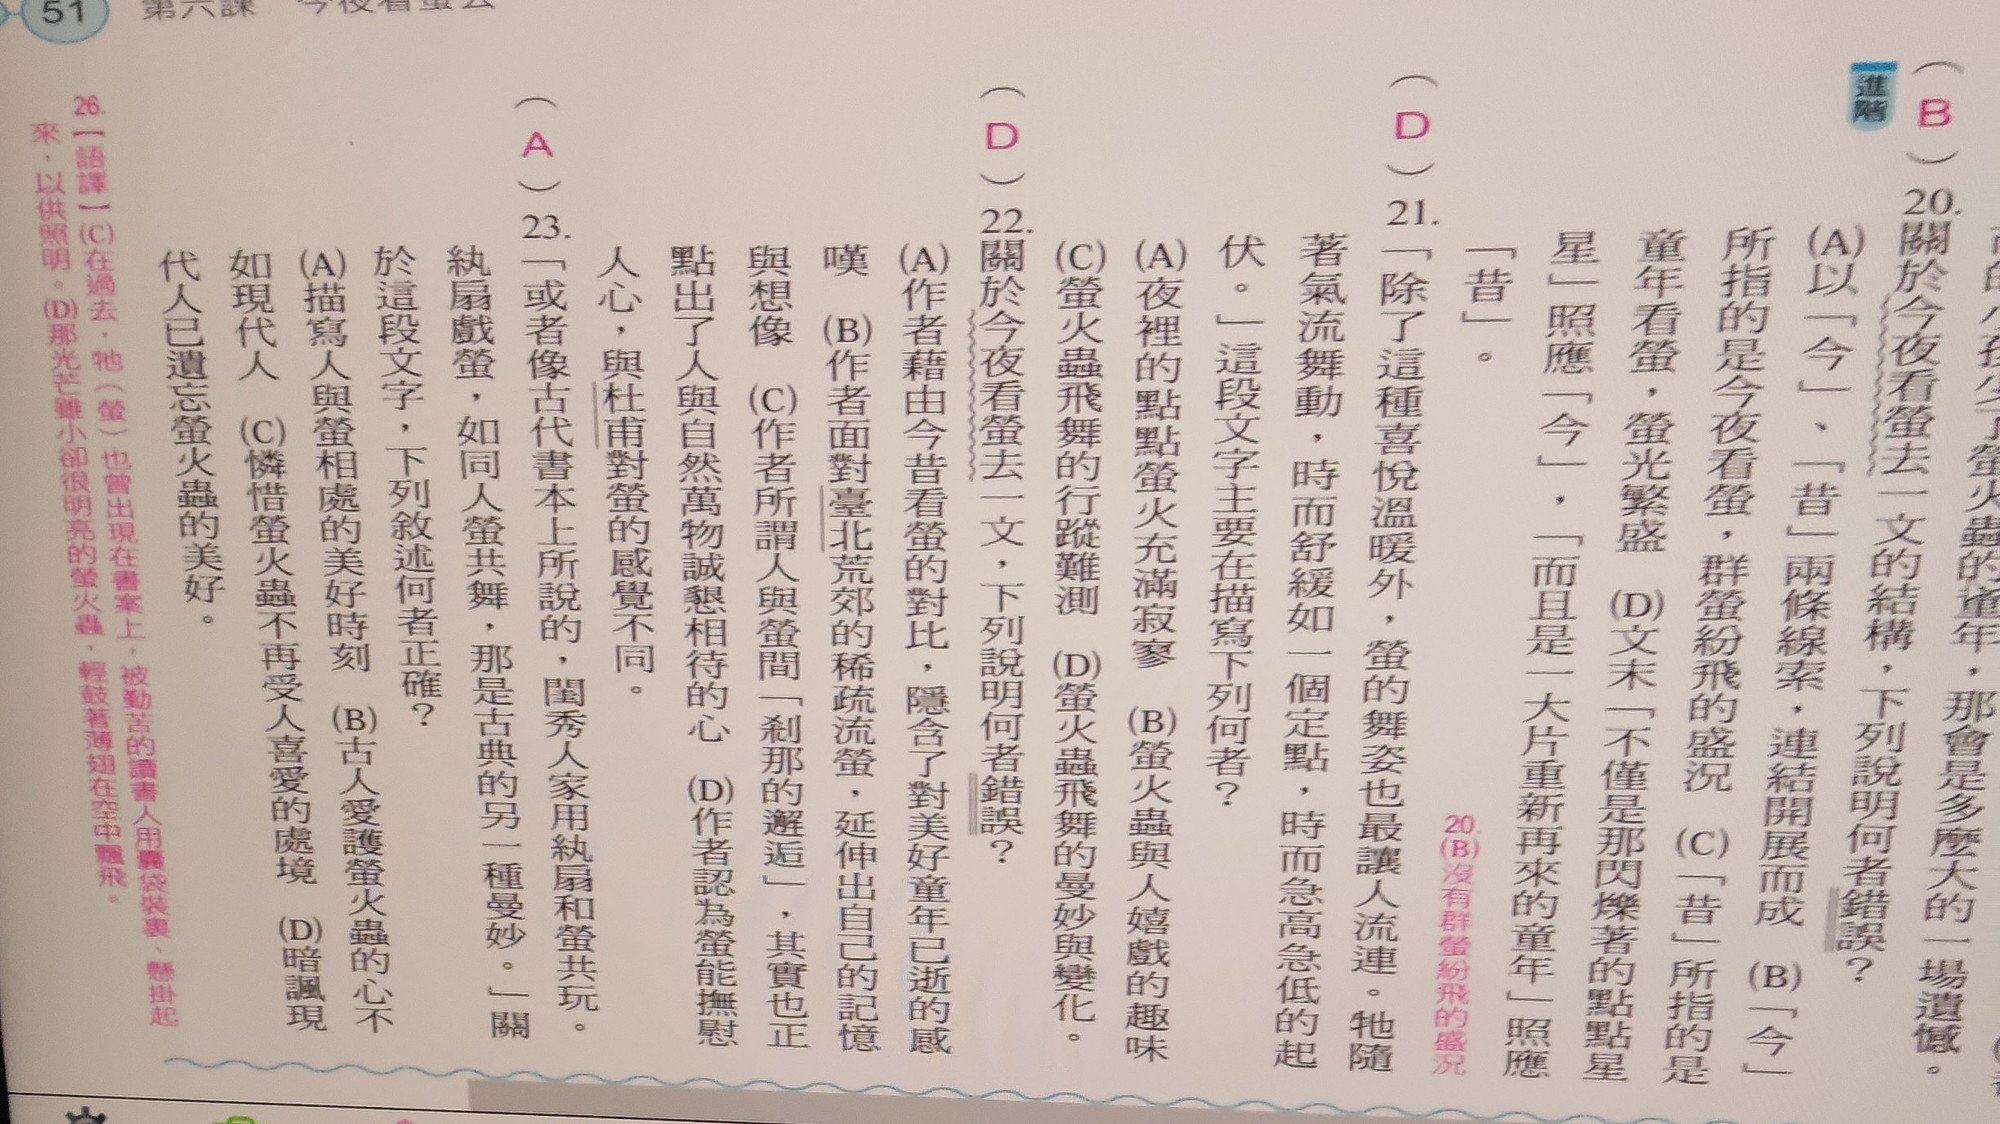 51 第六課 今夜看螢去
的小孩少了螢火蟲的童年，那會是多麼大的一場遺憾。
（B）20.關於今夜看螢去一文的結構，下列說明何者錯誤？
進階
(A)以「今」、「昔」兩條線索，連結開展而成 (B)「今」
所指的是今夜看螢，群螢紛飛的盛況 (C)「昔」所指的是
童年看螢，螢光繁盛 (D)文末「不僅是那閃爍著的點點星
星」照應「今」，「而且是一大片重新再來的童年」照應
「昔」。
20.(B)沒有群螢紛飛的盛況
（D）21.「除了這種喜悅溫暖外，螢的舞姿也最讓人流連。牠隨
著氣流舞動，時而舒緩如一個定點，時而急高急低的起
伏。」這段文字主要在描寫下列何者？
(A)夜裡的點點螢火充滿寂寥 (B)螢火蟲與人嬉戲的趣味
(C)螢火蟲飛舞的行蹤難測 (D)螢火蟲飛舞的曼妙與變化。
（D）22.關於今夜看螢去一文，下列說明何者錯誤？
(A)作者藉由今昔看螢的對比，隱含了對美好童年已逝的感
嘆 (B)作者面對臺北荒郊的稀疏流螢，延伸出自己的記憶
與想像 (C)作者所謂人與螢間「剎那的邂逅」，其實也正
點出了人與自然萬物誠懇相待的心 (D)作者認為螢能撫慰
人心，與杜甫對螢的感覺不同。
（A）23.「或者像古代書本上所說的，閨秀人家用紈扇和螢共玩。
紈扇戲螢，如同人螢共舞，那是古典的另一種曼妙。」關
於這段文字，下列敘述何者正確？
(A)描寫人與螢相處的美好時刻 (B)古人愛護螢火蟲的心不
如現代人 (C)憐惜螢火蟲不再受人喜愛的處境 (D)暗諷現
代人已遺忘螢火蟲的美好。
26.【語譯】(C)在過去，牠（螢）也曾出現在書案上，被勤苦的讀書人用囊袋裝裹、懸掛起
來，以供照明。(D)那光芒雖小卻很明亮的螢火蟲，輕鼓著薄翅在空中飄飛。